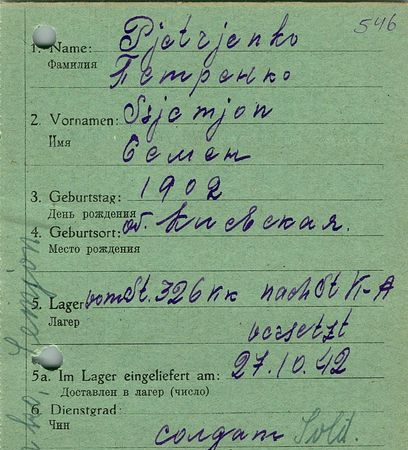 546
1. Name: Pjetrjenko
Фамилия Петренко
2. Vornamen: Ssjemjon
Имя Семен
3. Geburtstag: 1902
День рождения
4. Geburtsort: об. Киевская.
Место рождения
5. Lager vom St. 326 KK nach St K-A
Лагер versetzt
27.10.42
5a. Im Lager eingeliefert am:
Доставлен в лагер (число)
6. Dienstgrad:
Чин солдат Sold.